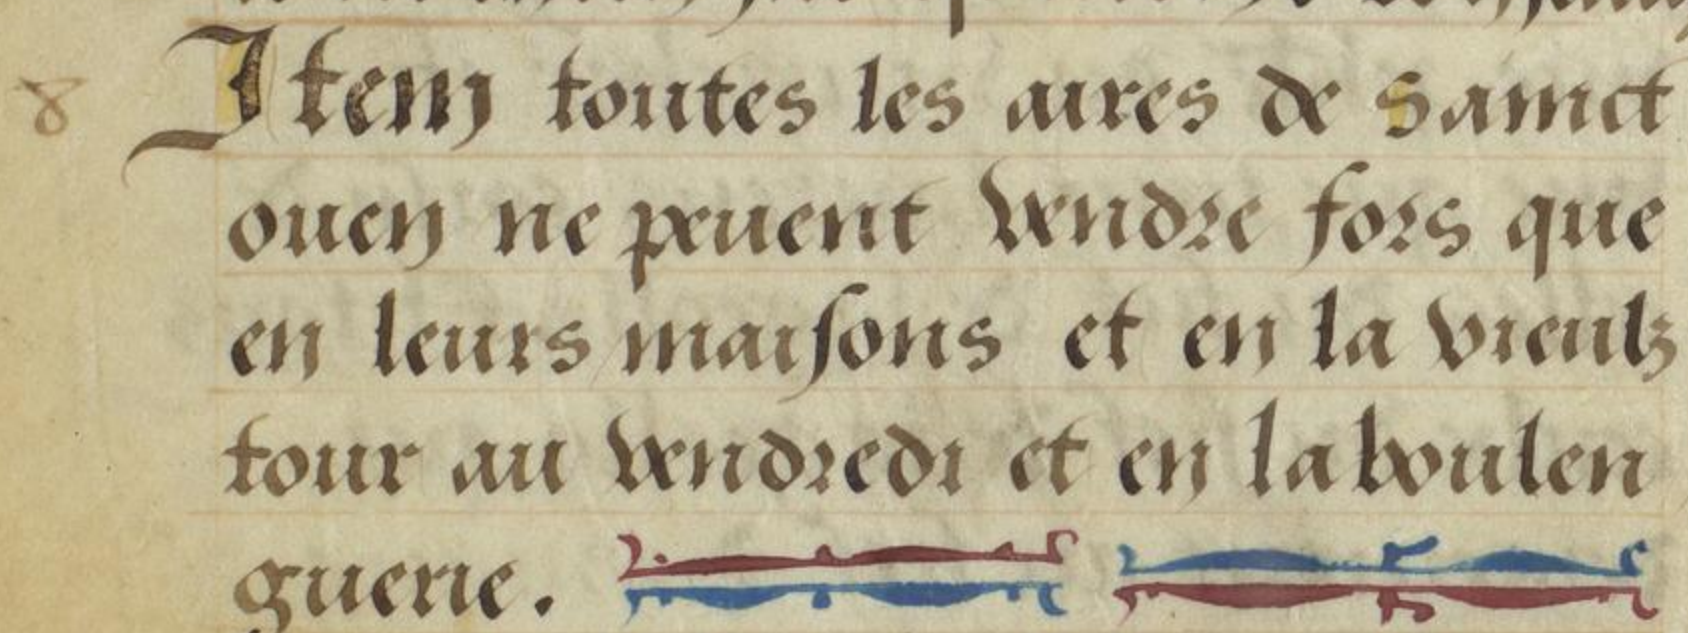 8 Item toutes les aires de Sainct
ouen ne peuent vendre fors que
en leurs maisons et en la vieulz
tour au vendredi et en la boulen
guerie.